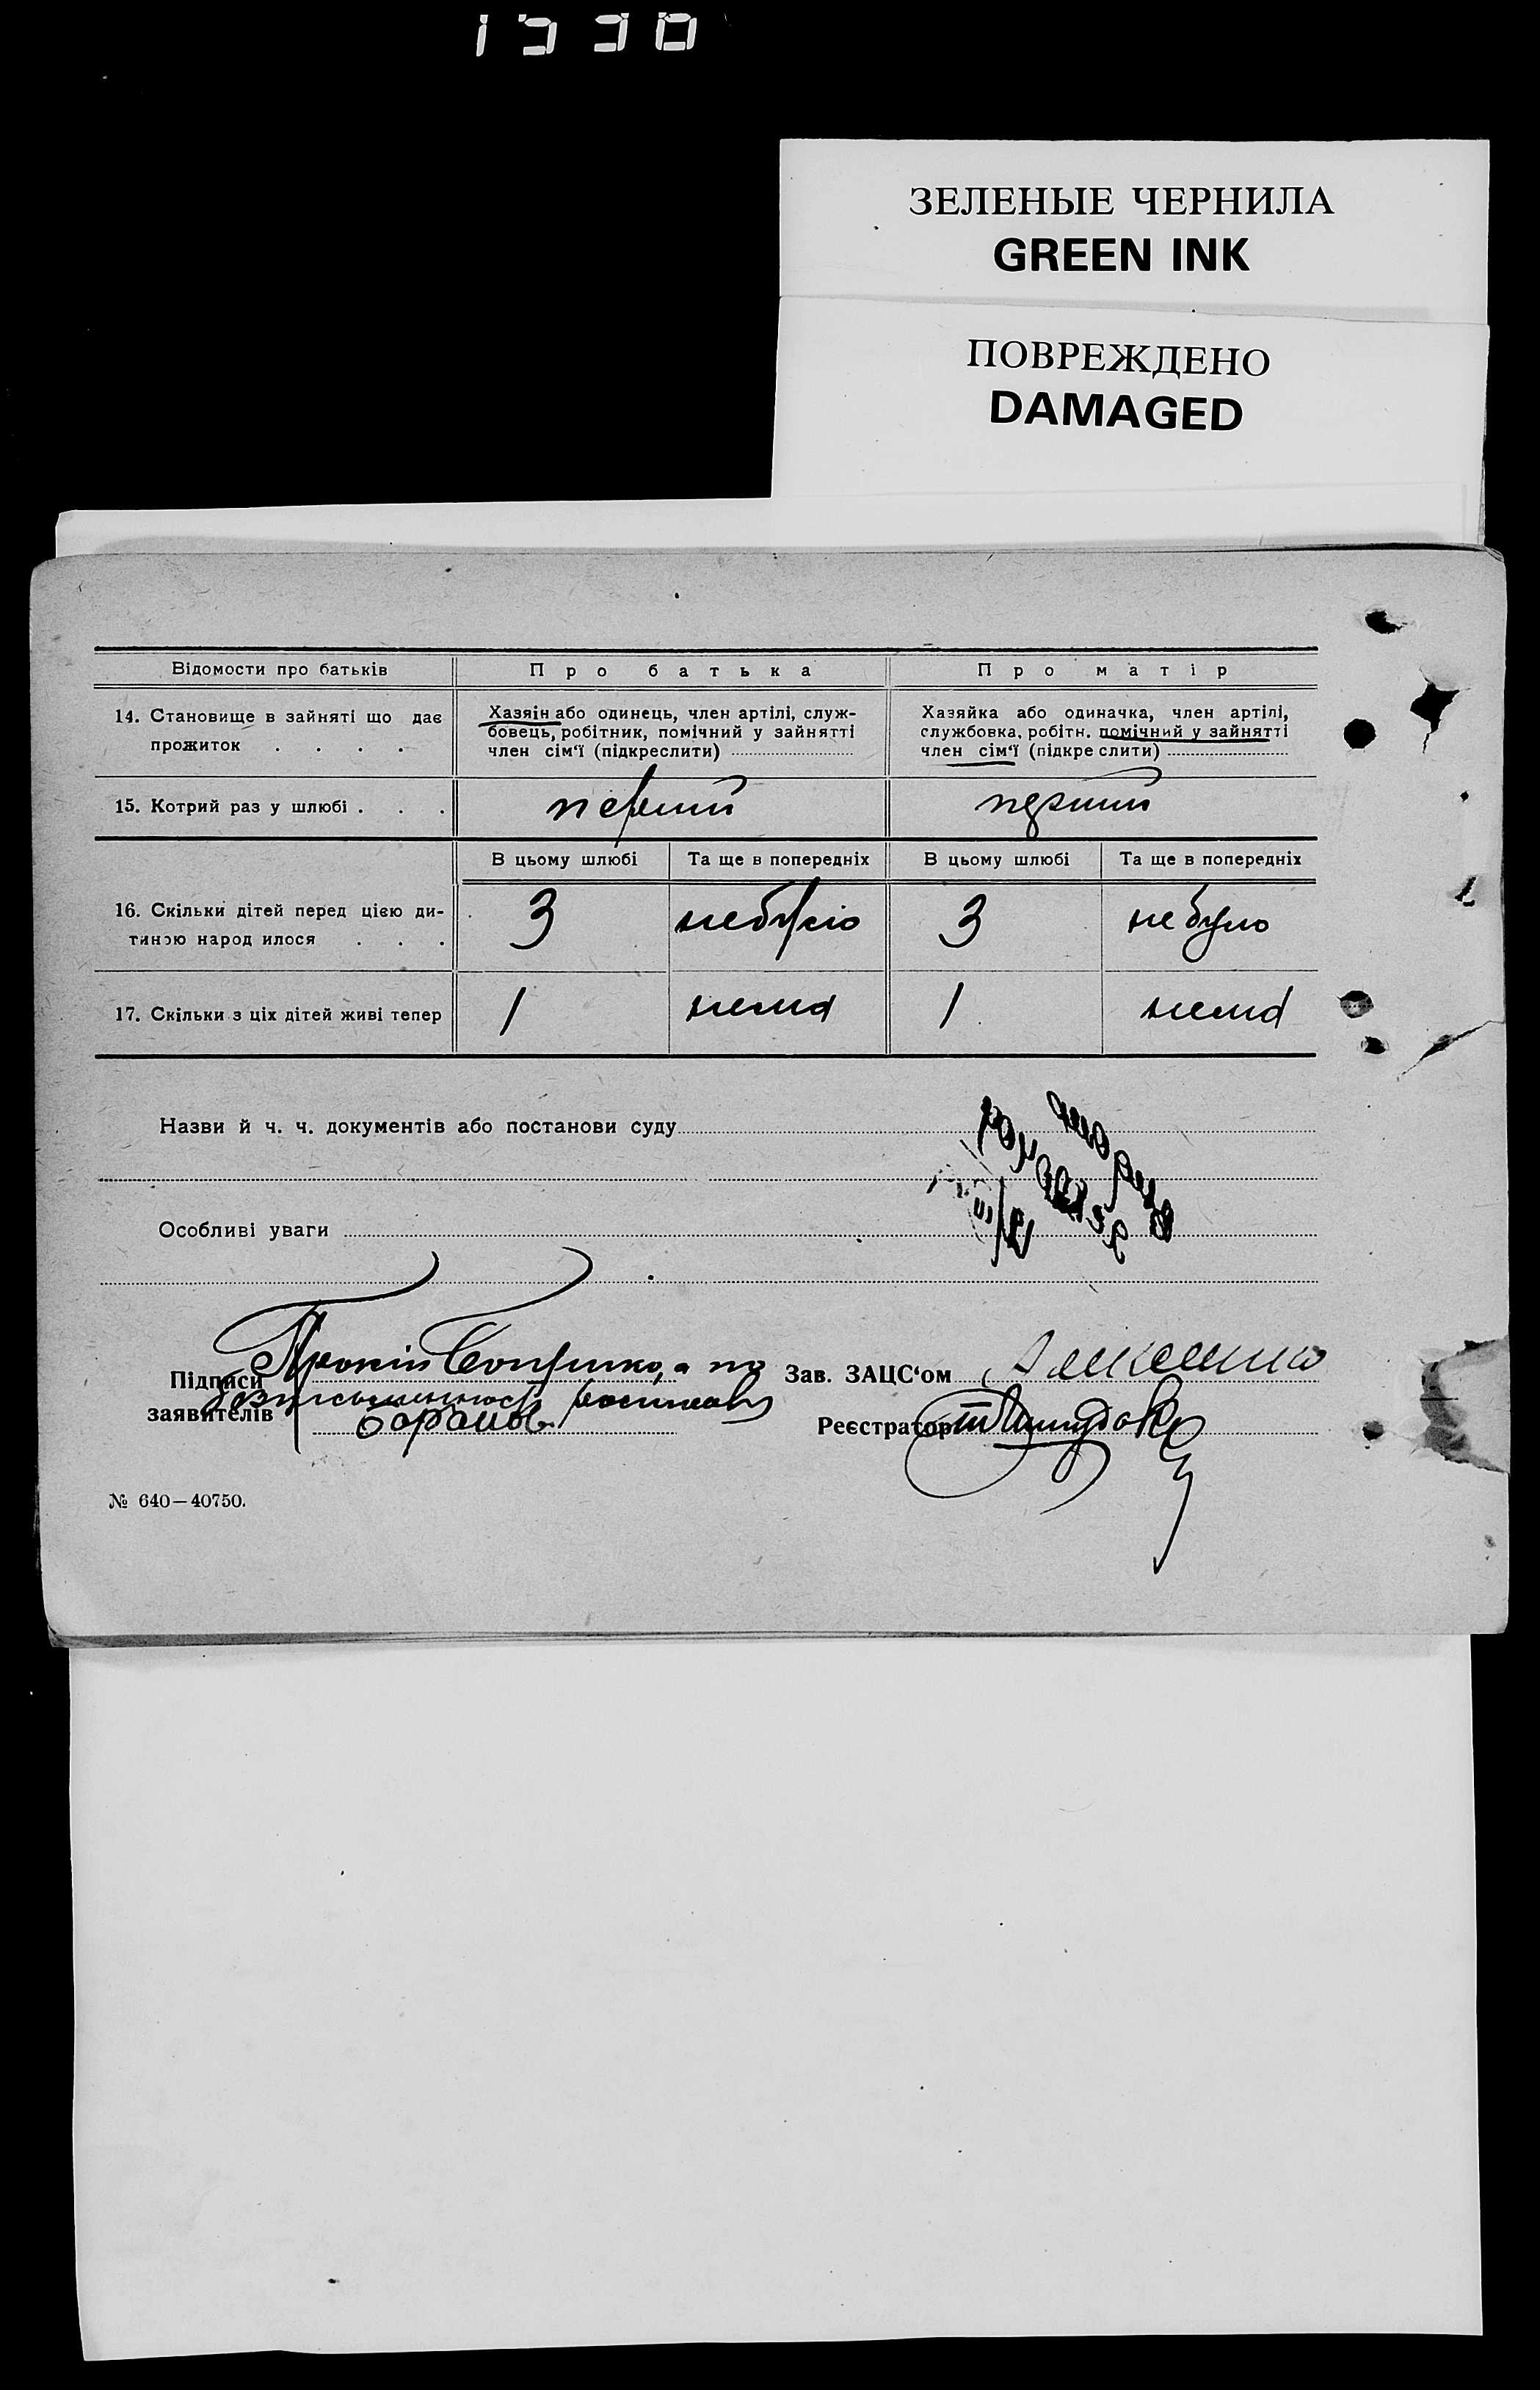 1990
ЗЕЛЕНЫЕ ЧЕРНИЛА
GREEN INK
ПОВРЕЖДЕНО
DAMAGED
Відомости про батьків
Про батька
Про матір
14. Становище в зайняті що дає
прожиток . . . .
Хазяїн або одинець, член артілі, служ-
бовець, робітник, помічний у зайнятті
член сім'ї (підкреслити)
Хазяйка або одиначка, член артілі,
службовка, робітн. помічний у зайнятті
член сім'ї (підкреслити)
15. Котрий раз у шлюбі . . .
перший
перший
В цьому шлюбі
Та ще в попередніх
В цьому шлюбі
Та ще в попередніх
16. Скільки дітей перед цією ди-
тиною народилося . . .
3
небуло
3
небуло
17. Скільки з ціх дітей живі тепер
1
нема
1
нема
Назви й ч. ч. документів або постанови суду
Особливі уваги
Підписи
заявителів
а по
Зав. ЗАЦС'ом
Реєстратор
№ 640—40750.